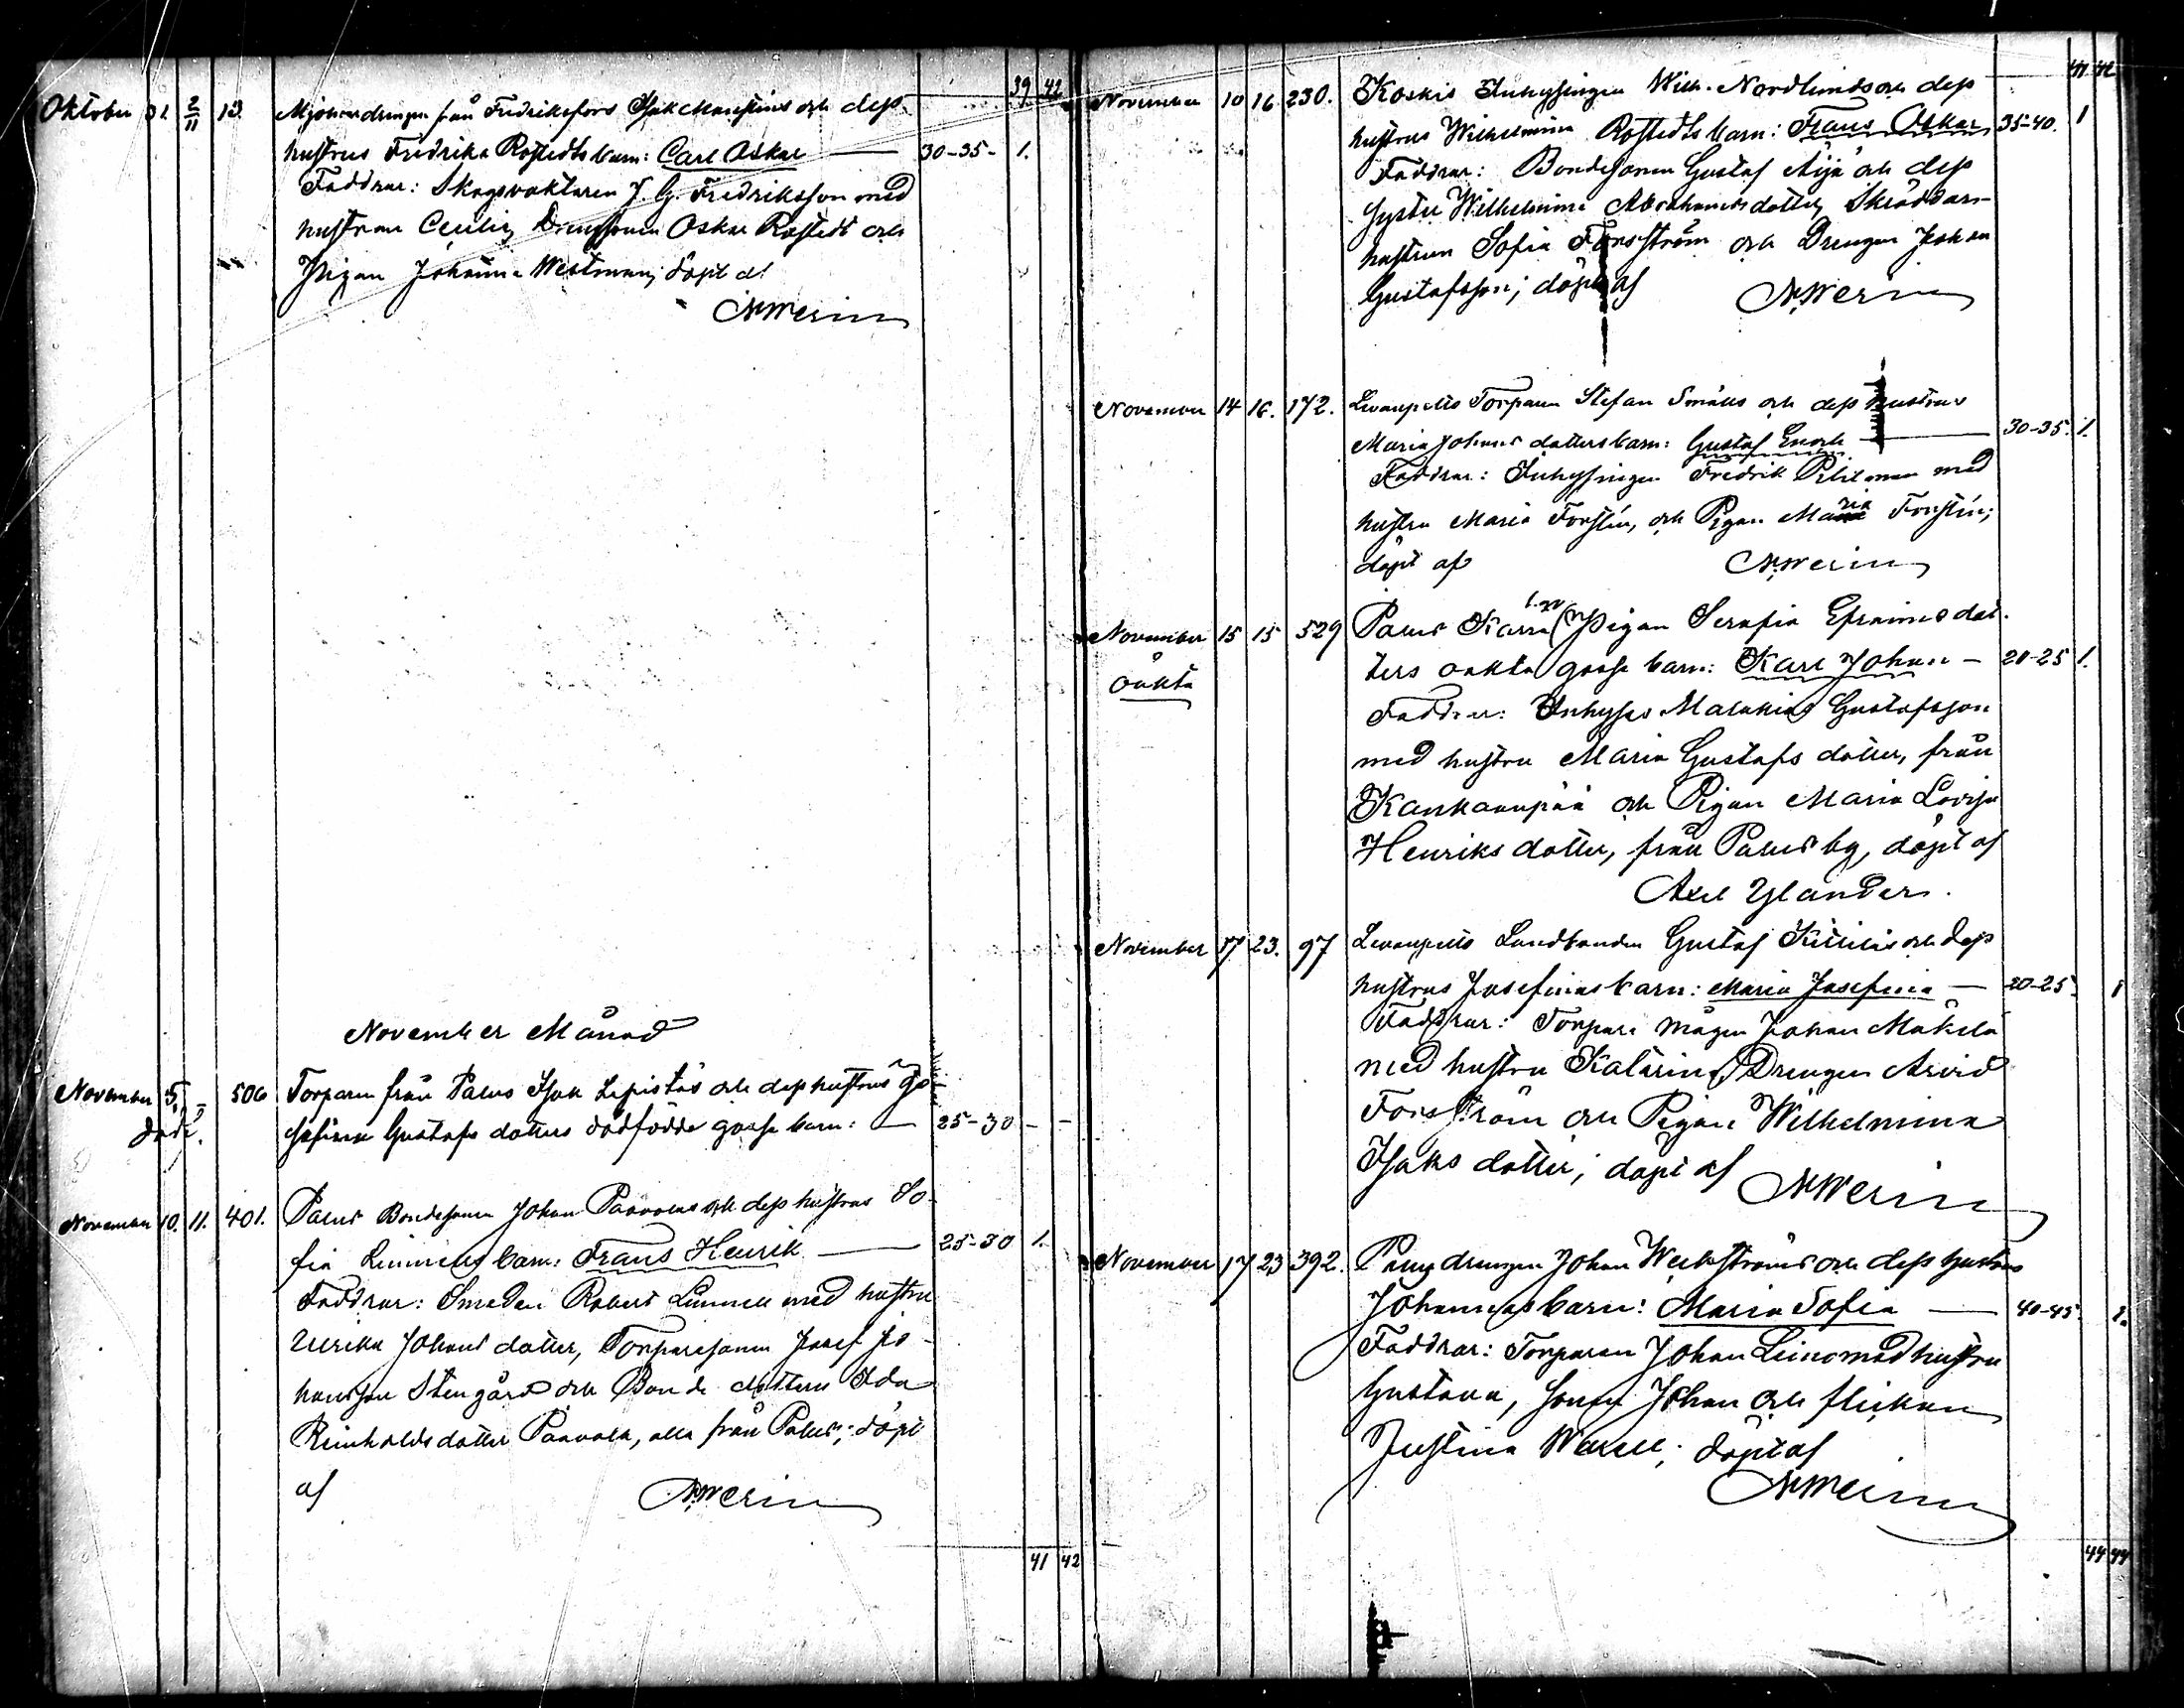 39 42
Oktober 31. 2/11 13. från Fredriksfors Isak och dess
hustrus Fredrika Rostedts barn: Carl Oskar — 30-35- 1.
Faddrar: Skogsvaktaren J. G. Fredriksson med
hustrun Cecilia, Oskar Rostedt och
Pigan Johanna Westman; döpt af
November Månad
November 5. – 506 Torparen från Palus Isak Lepistös och dess hustrus Jo-
död. sefina Gustafs dotters dödfödde gosse barn: — 25-30 – –
November 10. 11. 401. Palus Bondesonen Johan Paavolas och dess hustrus So-
fia barn: Frans Henrik — 25-30 1.
Faddrar: Smeden Robert med hustru
Ulrika Johans dotter, Torparesonen Josef Jo-
hansson Stengård och Bonde dottern Ida
Reinholds dotter Paavola, alla från Palus; döpt
af
41 42
41 42
November 10 16 230. Koskis Inhysingen Wilh. Nordlunds och dess
hustrus Wilhelmina Rostedts barn: Frans Oskar 35-40. 1
Faddrar: Bondesonen Gustaf Äijä och dess
syster Wilhelmina Abrahams dotter, Skräddare-
hustrun Sofia Forsström och Drengen Johan
Gustafsson; döpt af
November 14 16. 172. Torparen Stefan och dess hustrus
Maria Johans dotters barn: Gustaf Enok — 30-35. 1.
Faddrar: Inhysingen Fredrik med
hustru Maria Forstén, och Pigan Maria Forstén;
döpt af
November 15 15 529 Palus Pigan Serafia Efraims dot-
oäkta
ters oäkta gosse barn: Karl Johan — 20-25 1.
Faddrar: Inhyses Malakias Gustafsson
med hustru Maria Gustafs dotter, från
Kankaanpää och Pigan Maria Lovisa
Henriks dotter, från Palus by, döpt af
Axel Ylander.
November 17 23. 97 Landbonden Gustaf och dess
hustrus Josefinas barn: Maria Josefina — 20-25. 1
Faddrar: Torpare mågen Johan Mäkelä
med hustru Katarina, Drengen Arvid
Forsström och Pigan Wilhelmina
Isaks dotter; döpt af
November 17 23 392. drengen Johan och dess hustrus
Johannas barn: Maria Sofia — 40-45. 1.
Faddrar: Torparen Johan Leino med hustru
Gustava, sonen Johan och flickan
Justina; döpt af
44 44